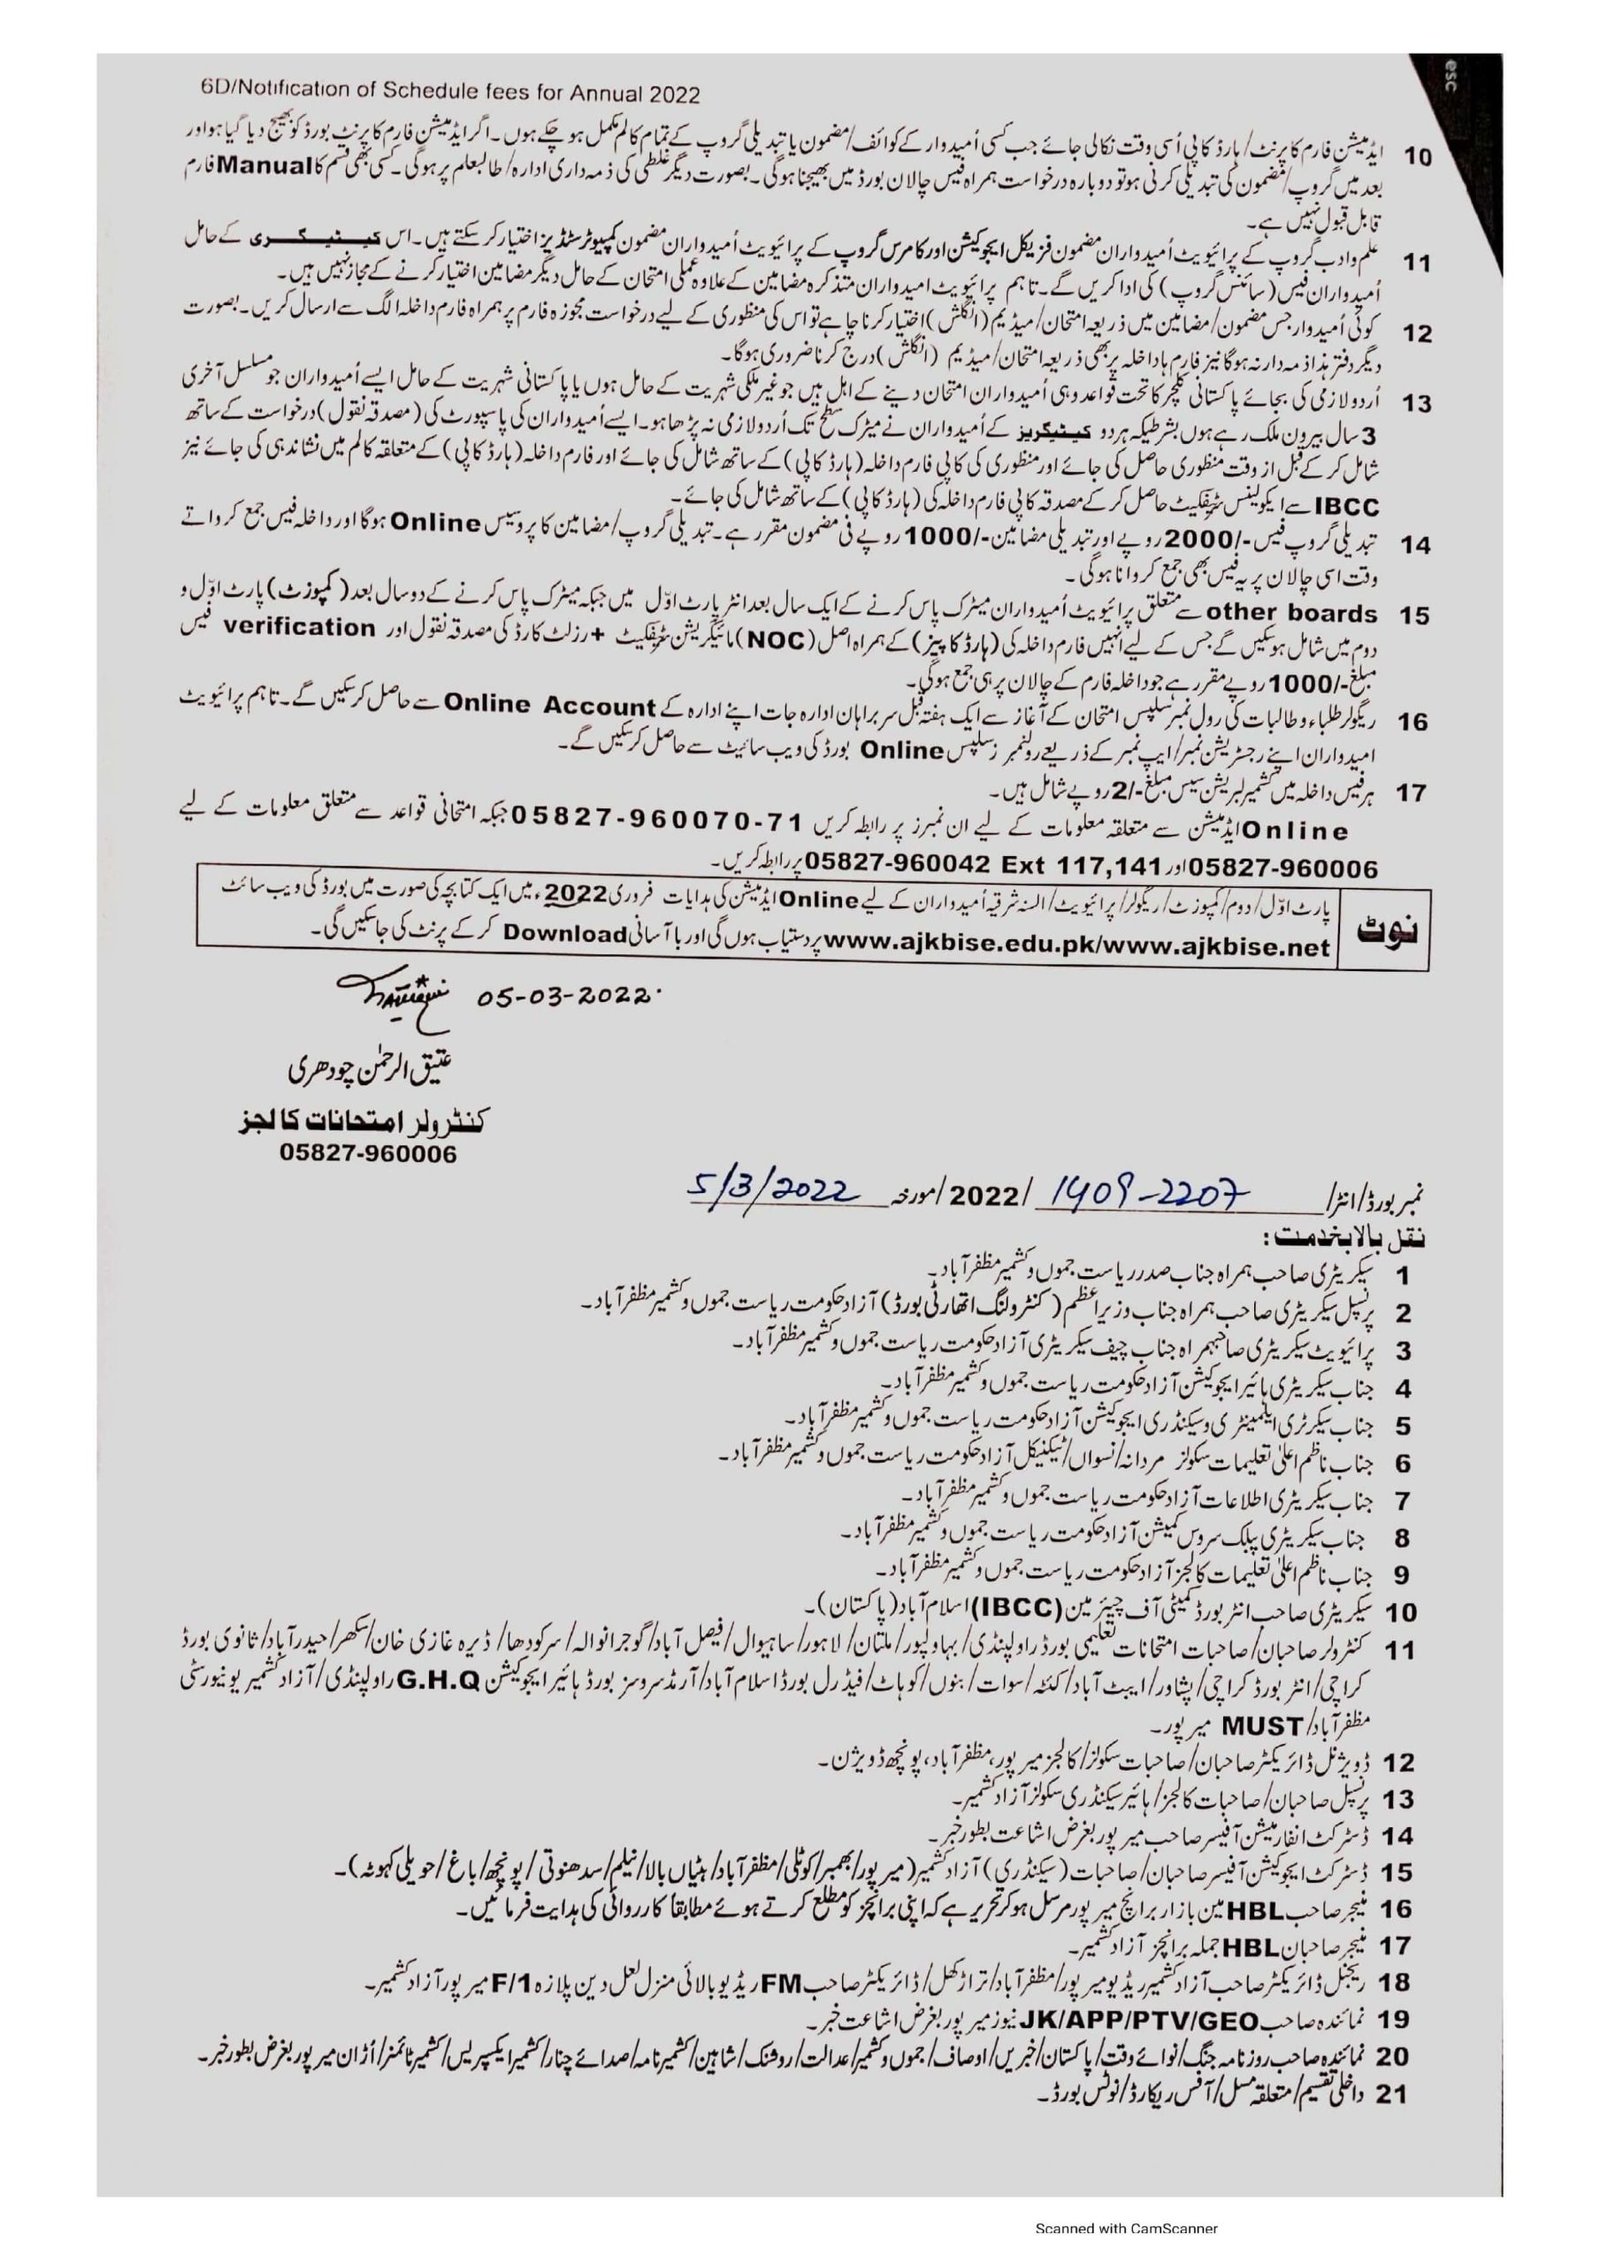 esc
6D/Notification of Schedule fees for Annual 2022
10 ایڈمیشن فارم کا پرنٹ/ہارڈ کاپی اُسی وقت نکالی جائے جب کسی اُمیدوار کے کوائف/مضمون یا تبدیلی گروپ کے تمام کالم مکمل ہو چکے ہوں۔ اگر ایڈمیشن فارم کا پرنٹ بورڈ کو بھیج دیا گیا ہو اور
بعد میں گروپ/مضمون کی تبدیلی کرنی ہو تو دوبارہ درخواست ہمراہ فیس چالان بورڈ میں بھیجنا ہوگی۔ بصورت دیگر غلطی کی ذمہ داری ادارہ/طالبعلم پر ہوگی۔ کسی بھی قسم کا Manual فارم
قابل قبول نہیں ہے۔
11 علم و ادب گروپ کے پرائیویٹ اُمیدواران مضمون فزیکل ایجوکیشن اور کامرس گروپ کے پرائیویٹ اُمیدواران مضمون کمپیوٹر سٹڈیز اختیار کر سکتے ہیں۔ اس کیٹیگری کے حامل
اُمیدواران فیس (سائنس گروپ) کی ادا کریں گے۔ تاہم پرائیویٹ امیدواران متذکرہ مضامین کے علاوہ عملی امتحان کے حامل دیگر مضامین اختیار کرنے کے مجاز نہیں ہیں۔
12 کوئی اُمیدوار جس مضمون/مضامین میں ذریعہ امتحان/میڈیم (انگلش) اختیار کرنا چاہے تو اس کی منظوری کے لیے درخواست مجوزہ فارم پر ہمراہ فارم داخلہ الگ سے ارسال کریں۔ بصورت
دیگر دفتر ہذا ذمہ دار نہ ہوگا نیز فارم ہا داخلہ پر بھی ذریعہ امتحان/میڈیم (انگلش) درج کرنا ضروری ہوگا۔
13 اُردو لازمی کی بجائے پاکستانی کلچر کا تحت قواعد وہی اُمیدواران امتحان دینے کے اہل ہیں جو غیر ملکی شہریت کے حامل ہوں یا پاکستانی شہریت کے حامل ایسے اُمیدواران جو مسلسل آخری
3 سال بیرون ملک رہے ہوں بشرطیکہ ہر دو کیٹیگریز کے اُمیدواران نے میٹرک سطح تک اُردو لازمی نہ پڑھا ہو۔ ایسے اُمیدواران کی پاسپورٹ کی (مصدقہ نقول) درخواست کے ساتھ
شامل کر کے قبل از وقت منظوری حاصل کی جائے اور منظوری کی کاپی فارم داخلہ (ہارڈ کاپی) کے ساتھ شامل کی جائے اور فارم داخلہ (ہارڈ کاپی) کے متعلقہ کالم میں نشاندہی کی جائے نیز
IBCC سے ایکولینس سرٹیفکیٹ حاصل کر کے مصدقہ کاپی فارم داخلہ کی (ہارڈ کاپی) کے ساتھ شامل کی جائے۔
14 تبدیلی گروپ فیس -/2000 روپے اور تبدیلی مضامین -/1000 روپے فی مضمون مقرر ہے۔ تبدیلی گروپ/مضامین کا پروسیس Online ہوگا اور داخلہ فیس جمع کرواتے
وقت اسی چالان پر یہ فیس بھی جمع کروانا ہوگی۔
15 other boards سے متعلق پرائیویٹ اُمیدواران میٹرک پاس کرنے کے ایک سال بعد انٹر پارٹ اوّل میں جبکہ میٹرک پاس کرنے کے دو سال بعد (کمپوزٹ) پارٹ اوّل و
دوم میں شامل ہو سکیں گے جس کے لیے انہیں فارم داخلہ کی (ہارڈ کاپیز) کے ہمراہ اصل (NOC) مائیگریشن سرٹیفکیٹ + رزلٹ کارڈ کی مصدقہ نقول اور verification فیس
مبلغ -/1000 روپے مقرر ہے جو داخلہ فارم کے چالان پر ہی جمع ہوگی۔
16 ریگولر طلباء و طالبات کی رول نمبر سلپس امتحان کے آغاز سے ایک ہفتہ قبل سربراہان ادارہ جات اپنے ادارہ کے Online Account سے حاصل کر سکیں گے۔ تاہم پرائیویٹ
امیدواران اپنے رجسٹریشن نمبر/ایپ نمبر کے ذریعے رولنمبر سلپس Online بورڈ کی ویب سائیٹ سے حاصل کر سکیں گے۔
17 ہر فیس داخلہ میں کشمیر لبریشن سیس مبلغ -/2 روپے شامل ہیں۔
Online ایڈمیشن سے متعلقہ معلومات کے لیے ان نمبرز پر رابطہ کریں 05827-960070-71 جبکہ امتحانی قواعد سے متعلق معلومات کے لیے
05827-960006 اور 05827-960042 Ext 117,141 پر رابطہ کریں۔
نوٹ
پارٹ اوّل/دوم/کمپوزٹ/ریگولر/پرائیویٹ/السنہ شرقیہ اُمیدواران کے لیے Online ایڈمیشن کی ہدایات فروری 2022ء میں ایک کتابچہ کی صورت میں بورڈ کی ویب سائٹ
www.ajkbise.edu.pk/www.ajkbise.net پر دستیاب ہوں گی اور با آسانی Download کر کے پرنٹ کی جا سکیں گی۔
05-03-2022
عتیق الرحمٰن چودھری
کنٹرولر امتحانات کالجز
05827-960006
نمبر بورڈ/انٹر/ 1409-2207 /2022/مورخہ 5/3/2022
نقل بالا بخدمت:
1 سیکریٹری صاحب ہمراہ جناب صدر ریاست جموں و کشمیر مظفرآباد۔
2 پرنسپل سیکریٹری صاحب ہمراہ جناب وزیراعظم (کنٹرولنگ اتھارٹی بورڈ) آزاد حکومت ریاست جموں و کشمیر مظفرآباد۔
3 پرائیویٹ سیکریٹری صاحب ہمراہ جناب چیف سیکریٹری آزاد حکومت ریاست جموں و کشمیر مظفرآباد۔
4 جناب سیکریٹری ہائیر ایجوکیشن آزاد حکومت ریاست جموں و کشمیر مظفرآباد۔
5 جناب سیکرٹری ایلیمنٹری و سیکنڈری ایجوکیشن آزاد حکومت ریاست جموں و کشمیر مظفرآباد۔
6 جناب ناظم اعلیٰ تعلیمات سکولز مردانہ/نسواں/ٹیکنیکل آزاد حکومت ریاست جموں و کشمیر مظفرآباد۔
7 جناب سیکریٹری اطلاعات آزاد حکومت ریاست جموں و کشمیر مظفرآباد۔
8 جناب سیکریٹری پبلک سروس کمیشن آزاد حکومت ریاست جموں و کشمیر مظفرآباد۔
9 جناب ناظم اعلیٰ تعلیمات کالجز آزاد حکومت ریاست جموں و کشمیر مظفرآباد۔
10 سیکریٹری صاحب انٹر بورڈ کمیٹی آف چیئرمین (IBCC) اسلام آباد (پاکستان)۔
11 کنٹرولر صاحبان/صاحبات امتحانات تعلیمی بورڈ راولپنڈی/بہاولپور/ملتان/لاہور/ساہیوال/فیصل آباد/گوجرانوالہ/سرگودھا/ڈیرہ غازی خان/سکھر/حیدرآباد/ثانوی بورڈ
کراچی/انٹر بورڈ کراچی/پشاور/ایبٹ آباد/کوئٹہ/سوات/بنوں/کوہاٹ/فیڈرل بورڈ اسلام آباد/آرمڈ سروسز بورڈ ہائیر ایجوکیشن G.H.Q راولپنڈی/آزاد کشمیر یونیورسٹی
مظفرآباد/MUST میرپور۔
12 ڈویژنل ڈائریکٹر صاحبان/صاحبات سکولز/کالجز میرپور، مظفرآباد، پونچھ ڈویژن۔
13 پرنسپل صاحبان/صاحبات کالجز/ہائیر سیکنڈری سکولز آزاد کشمیر۔
14 ڈسٹرکٹ انفارمیشن آفیسر صاحب میرپور بغرض اشاعت بطور خبر۔
15 ڈسٹرکٹ ایجوکیشن آفیسر صاحبان/صاحبات (سیکنڈری) آزاد کشمیر (میرپور/بھمبر/کوٹلی/مظفرآباد/ہٹیاں بالا/نیلم/سدھنوتی/پونچھ/باغ/حویلی کہوٹہ)۔
16 منیجر صاحب HBL مین بازار برانچ میرپور مرسل ہو کر تحریر ہے کہ اپنی برانچز کو مطلع کرتے ہوئے مطابقاً کارروائی کی ہدایت فرمائیں۔
17 منیجر صاحبان HBL جملہ برانچز آزاد کشمیر۔
18 ریجنل ڈائریکٹر صاحب آزاد کشمیر ریڈیو میرپور/مظفرآباد/تراڑکھل/ڈائریکٹر صاحب FM ریڈیو بالائی منزل لعل دین پلازہ F/1 میرپور آزاد کشمیر۔
19 نمائندہ صاحب JK/APP/PTV/GEO نیوز میرپور بغرض اشاعت خبر۔
20 نمائندہ صاحب روزنامہ جنگ/نوائے وقت/پاکستان/خبریں/اوصاف/جموں و کشمیر/عدالت/روشنک/شاہین/کشمیر نامہ/صدائے چنار/کشمیر ایکسپریس/کشمیر ٹائمز/اُڑان میرپور بغرض بطور خبر۔
21 داخلی تقسیم/متعلقہ مسل/آفس ریکارڈ/نوٹس بورڈ۔
Scanned with CamScanner